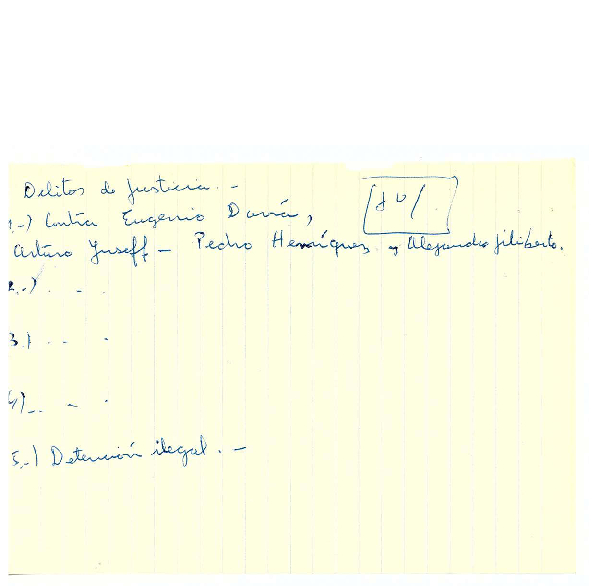 Delitos de Justicia. -
1.-) Contra Eugenio Daviá,
Arturo Yuseff - Pedro Henríquez y Alejandro filiberto.
2.-) . - .
3.) . - .
4)_. - .
5.-) Detención ilegal. -